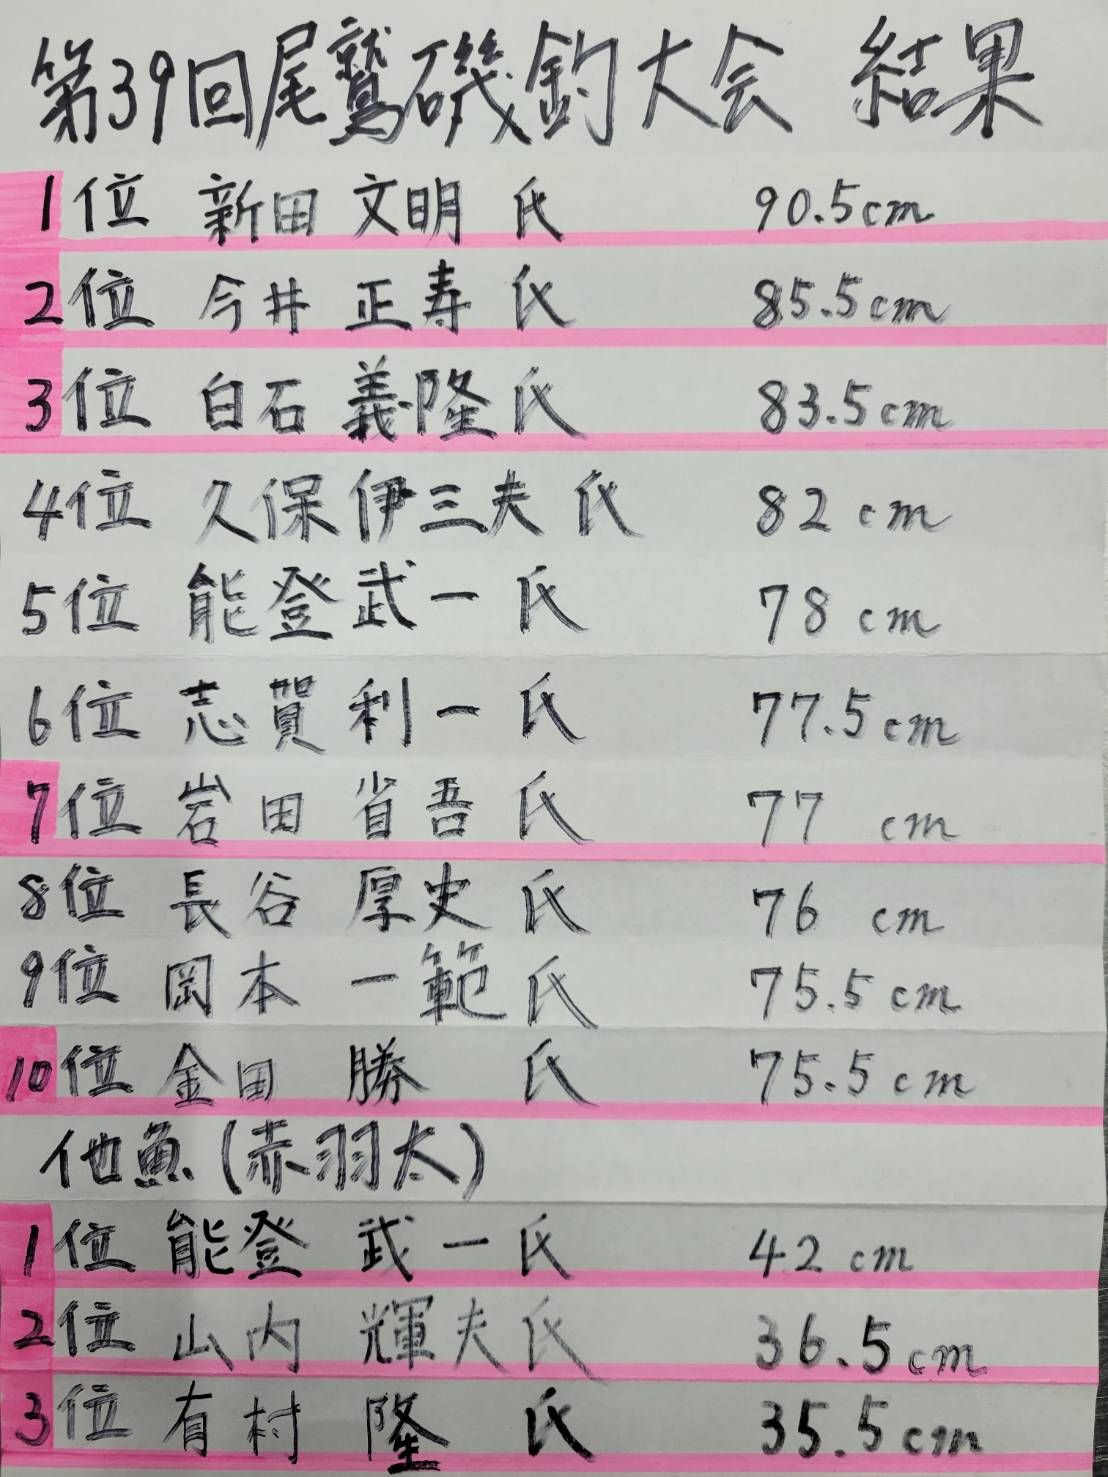 第39回尾鷲磯釣大会 結果
1位 新田 文明 氏 90.5cm
2位 今井 正寿 氏 85.5cm
3位 白石 義隆 氏 83.5cm
4位 久保 伊三夫 氏 82cm
5位 能登 武一 氏 78cm
6位 志賀 利一 氏 77.5cm
7位 岩田 省吾 氏 77cm
8位 長谷 厚史 氏 76cm
9位 岡本 一範 氏 75.5cm
10位 金田 勝 氏 75.5cm
他魚(赤羽太)
1位 能登 武一 氏 42cm
2位 山内 輝夫 氏 36.5cm
3位 有村 隆 氏 35.5cm